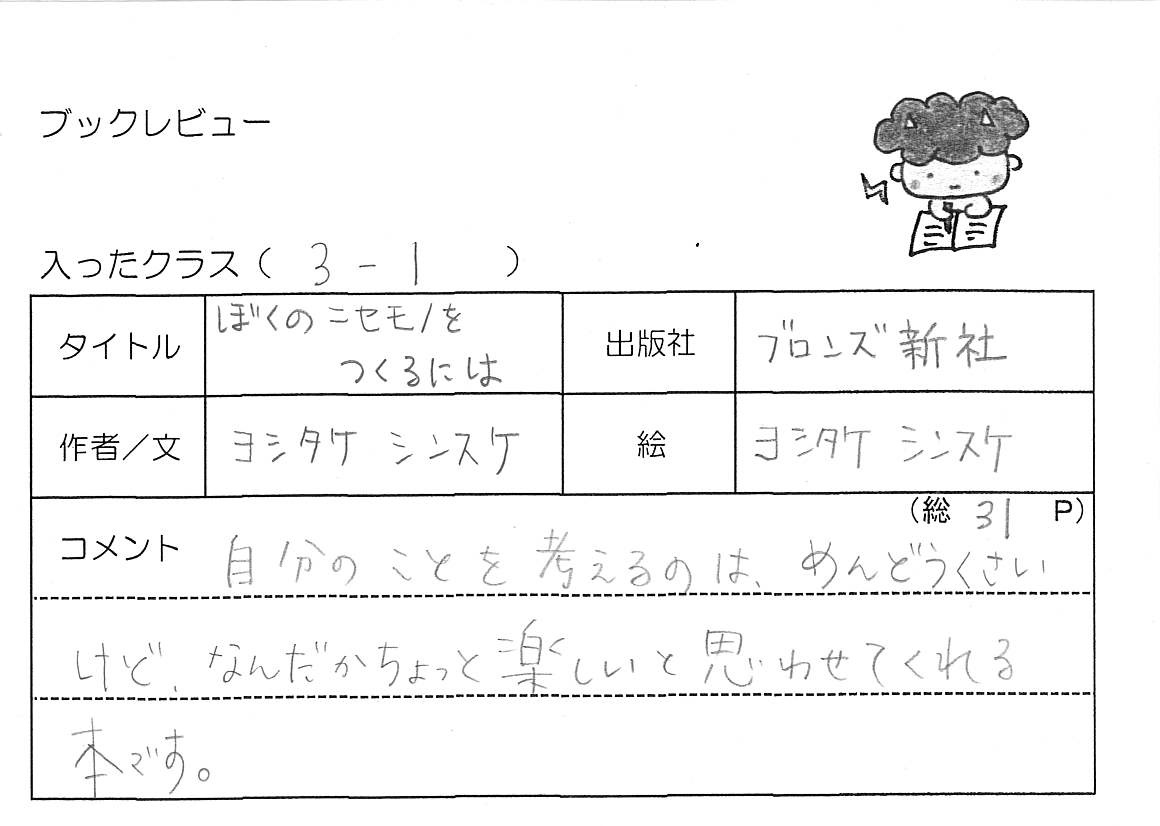 ブックレビュー
入ったクラス（ 3 - 1 ）
タイトル ぼくのニセモノを つくるには 出版社 ブロンズ新社
作者／文 ヨシタケ シンスケ 絵 ヨシタケ シンスケ
（総 31 P）
コメント 自分のことを考えるのは、めんどうくさい
けど、なんだかちょっと楽しいと思わせてくれる
本です。